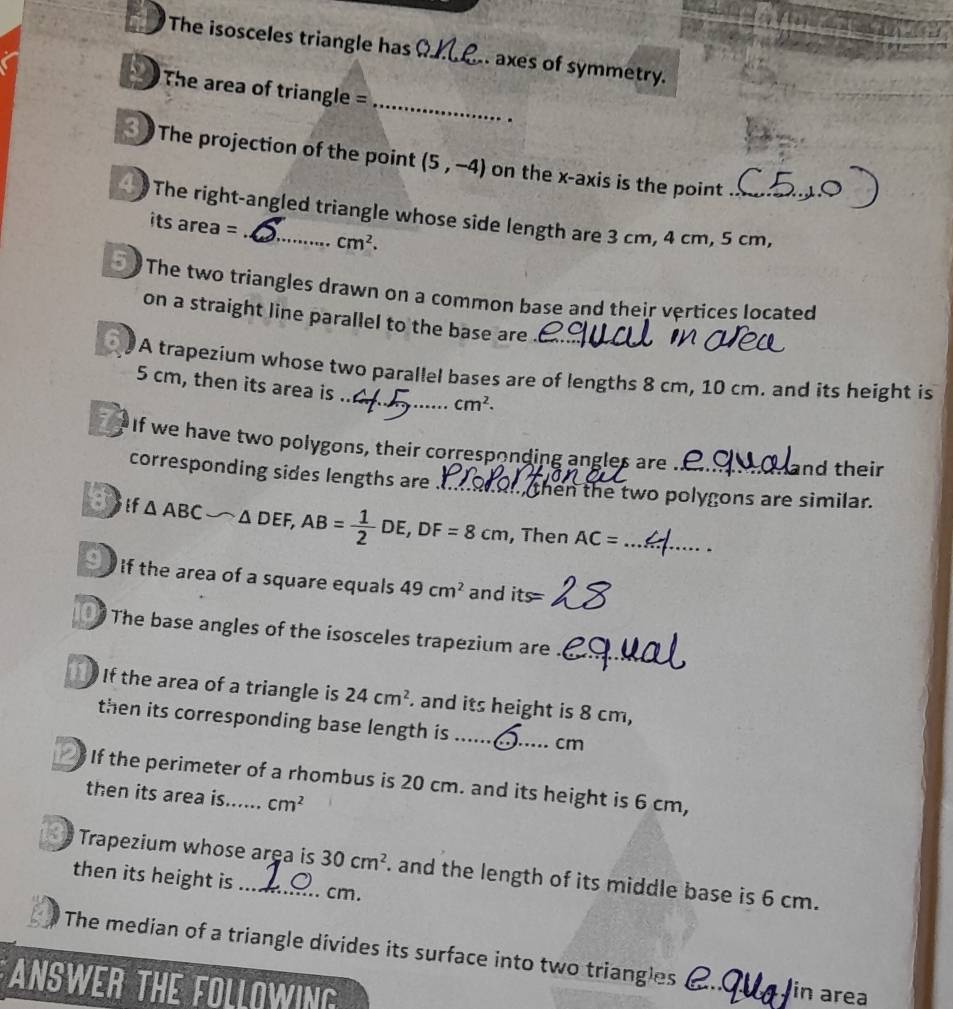 The isosceles triangle has one axes of symmetry.
2 The area of triangle = ...................... .
3 The projection of the point (5 , –4) on the x-axis is the point (5,0)
4 The right-angled triangle whose side length are 3 cm, 4 cm, 5 cm,
its area = .6.......... cm².
5 The two triangles drawn on a common base and their vertices located
on a straight line parallel to the base are equal in area
6 A trapezium whose two parallel bases are of lengths 8 cm, 10 cm. and its height is
5 cm, then its area is ..45...... cm².
7 If we have two polygons, their corresponding angles are equal and their
corresponding sides lengths are proportional, then the two polygons are similar.
8 if Δ ABC ~ Δ DEF, AB = 1/2 DE, DF = 8 cm, Then AC = ...4...... .
9 if the area of a square equals 49 cm² and its= 28
10 The base angles of the isosceles trapezium are equal
11 If the area of a triangle is 24 cm². and its height is 8 cm,
then its corresponding base length is ......6..... cm
12 If the perimeter of a rhombus is 20 cm. and its height is 6 cm,
then its area is...... cm²
13 Trapezium whose area is 30 cm². and the length of its middle base is 6 cm.
then its height is ...10...... cm.
The median of a triangle divides its surface into two triangles equal in area
ANSWER THE FOLLOWING